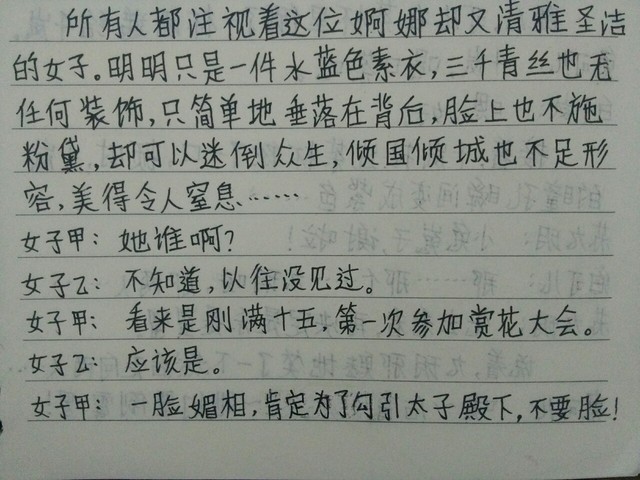 所有人都注视着这位婀娜却又清雅圣洁
的女子。明明只是一件水蓝色素衣,三千青丝也无
任何装饰,只简单地垂落在背后,脸上也不施
粉黛,却可以迷倒众生,倾国倾城也不足形
容,美得令人窒息……
女子甲：她谁啊?
女子乙：不知道,以往没见过。
女子甲：看来是刚满十五,第一次参加赏花大会。
女子乙：应该是。
女子甲：一脸媚相,肯定为了勾引太子殿下,不要脸!